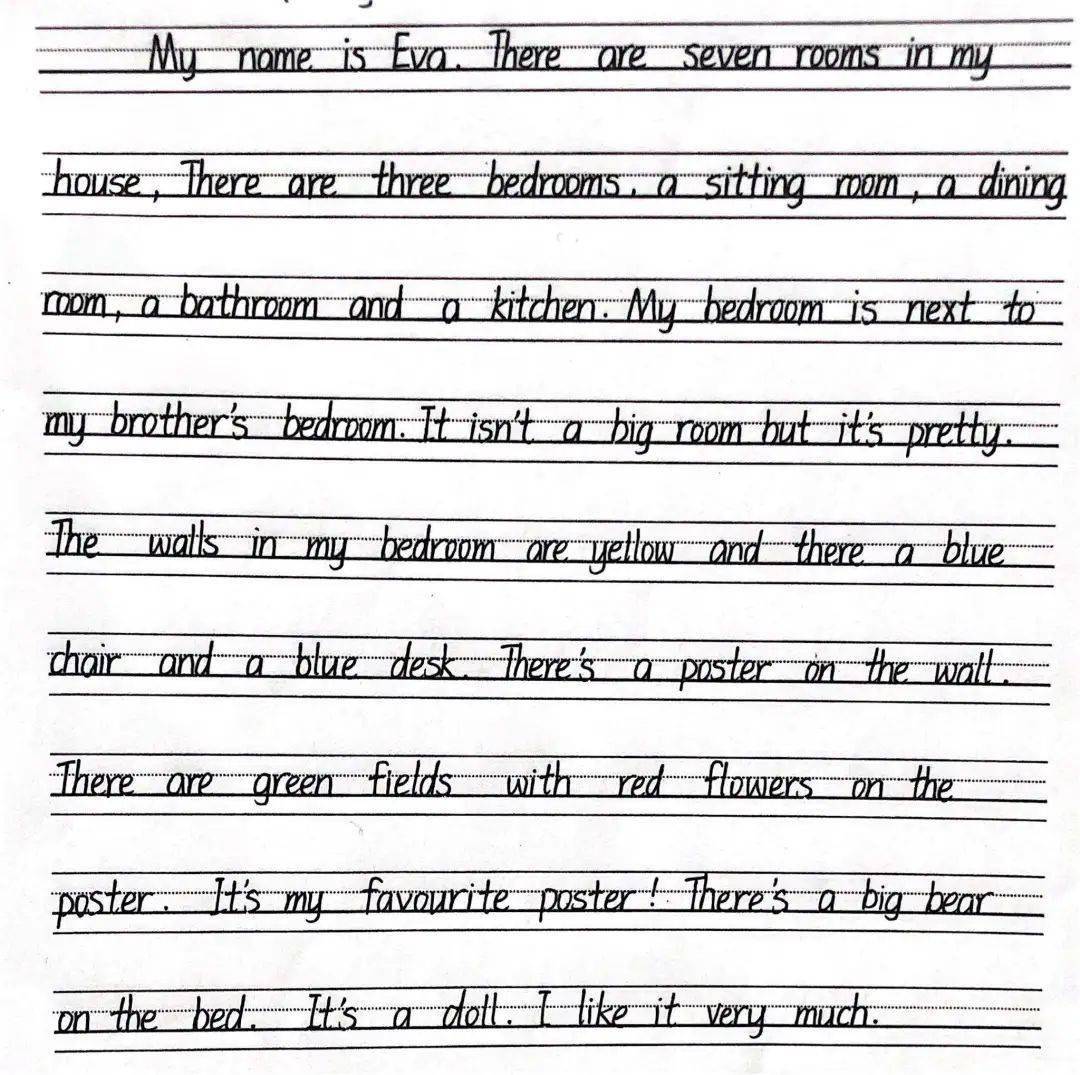 My name is Eva. There are seven rooms in my
house, There are three bedrooms. a sitting room, a dining
room, a bathroom and a kitchen. My bedroom is next to
my brother's bedroom. It isn't a big room but it's pretty.
The walls in my bedroom are yellow and there a blue
chair and a blue desk. There's a poster on the wall.
There are green fields with red flowers on the
poster. It's my favourite poster! There's a big bear
on the bed. It's a doll. I like it very much.